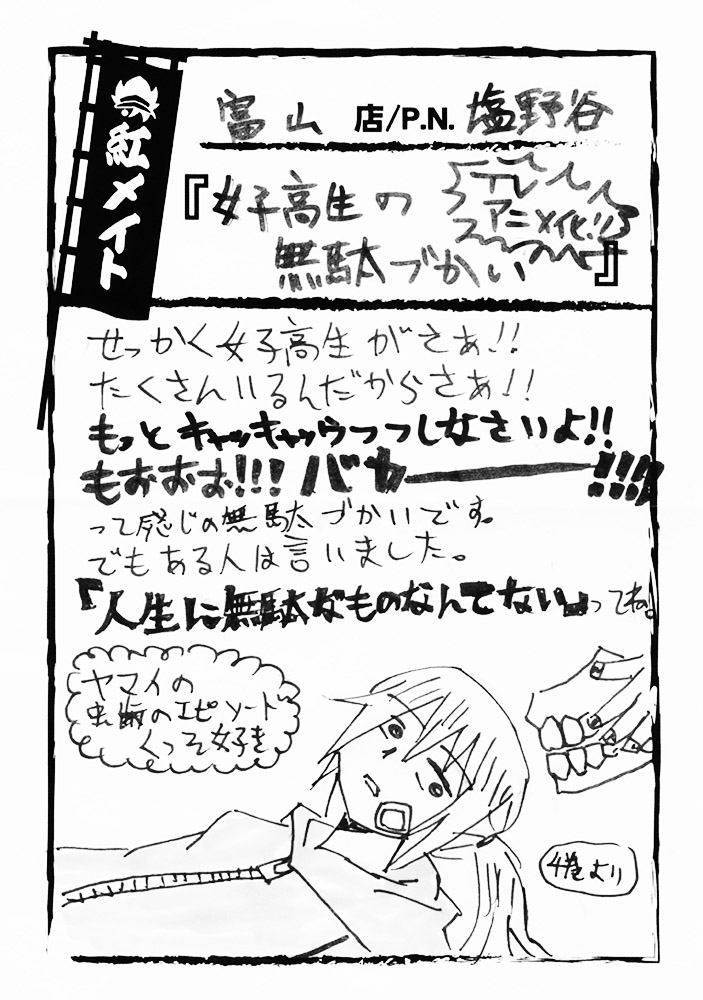 紅メイト
富山 店/P.N. 塩野谷
『女子高生の
無駄づかい』
テレビ
アニメイ化!!
せっかく女子高生がさぁ!!
たくさんいるんだからさぁ!!
もっとキャッキャッウフフしなさいよ!!
もおおお!!! バカー!!!!
って感じの無駄づかいです。
でもある人は言いました。
『人生に無駄なものなんてない』ってね!
ヤマイの
虫歯のエピソード
くっそ好き
4巻より